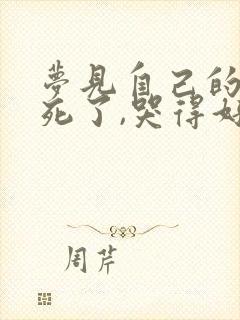 夢見自己的
死了,哭得好
周芹